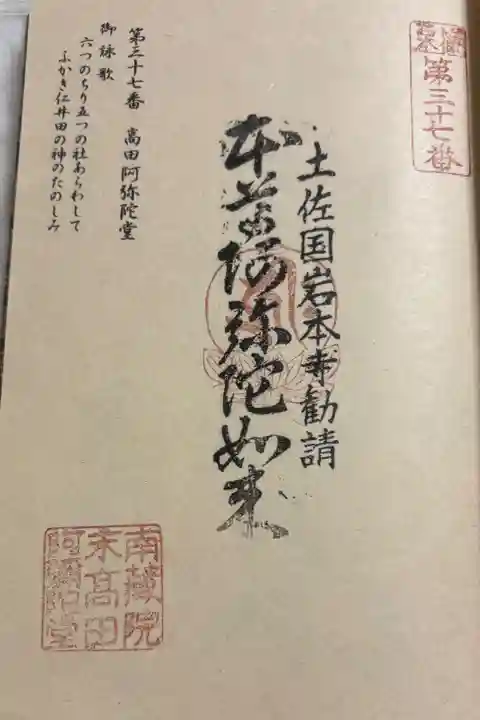 第三十七番
土佐国岩本寺勧請
本尊阿弥陀如来
第三十七番 高田阿弥陀堂
御詠歌
六つのちり五つの社あらわして
ふかき仁井田の神のたのしみ
南藏院
末高田
阿彌陀堂